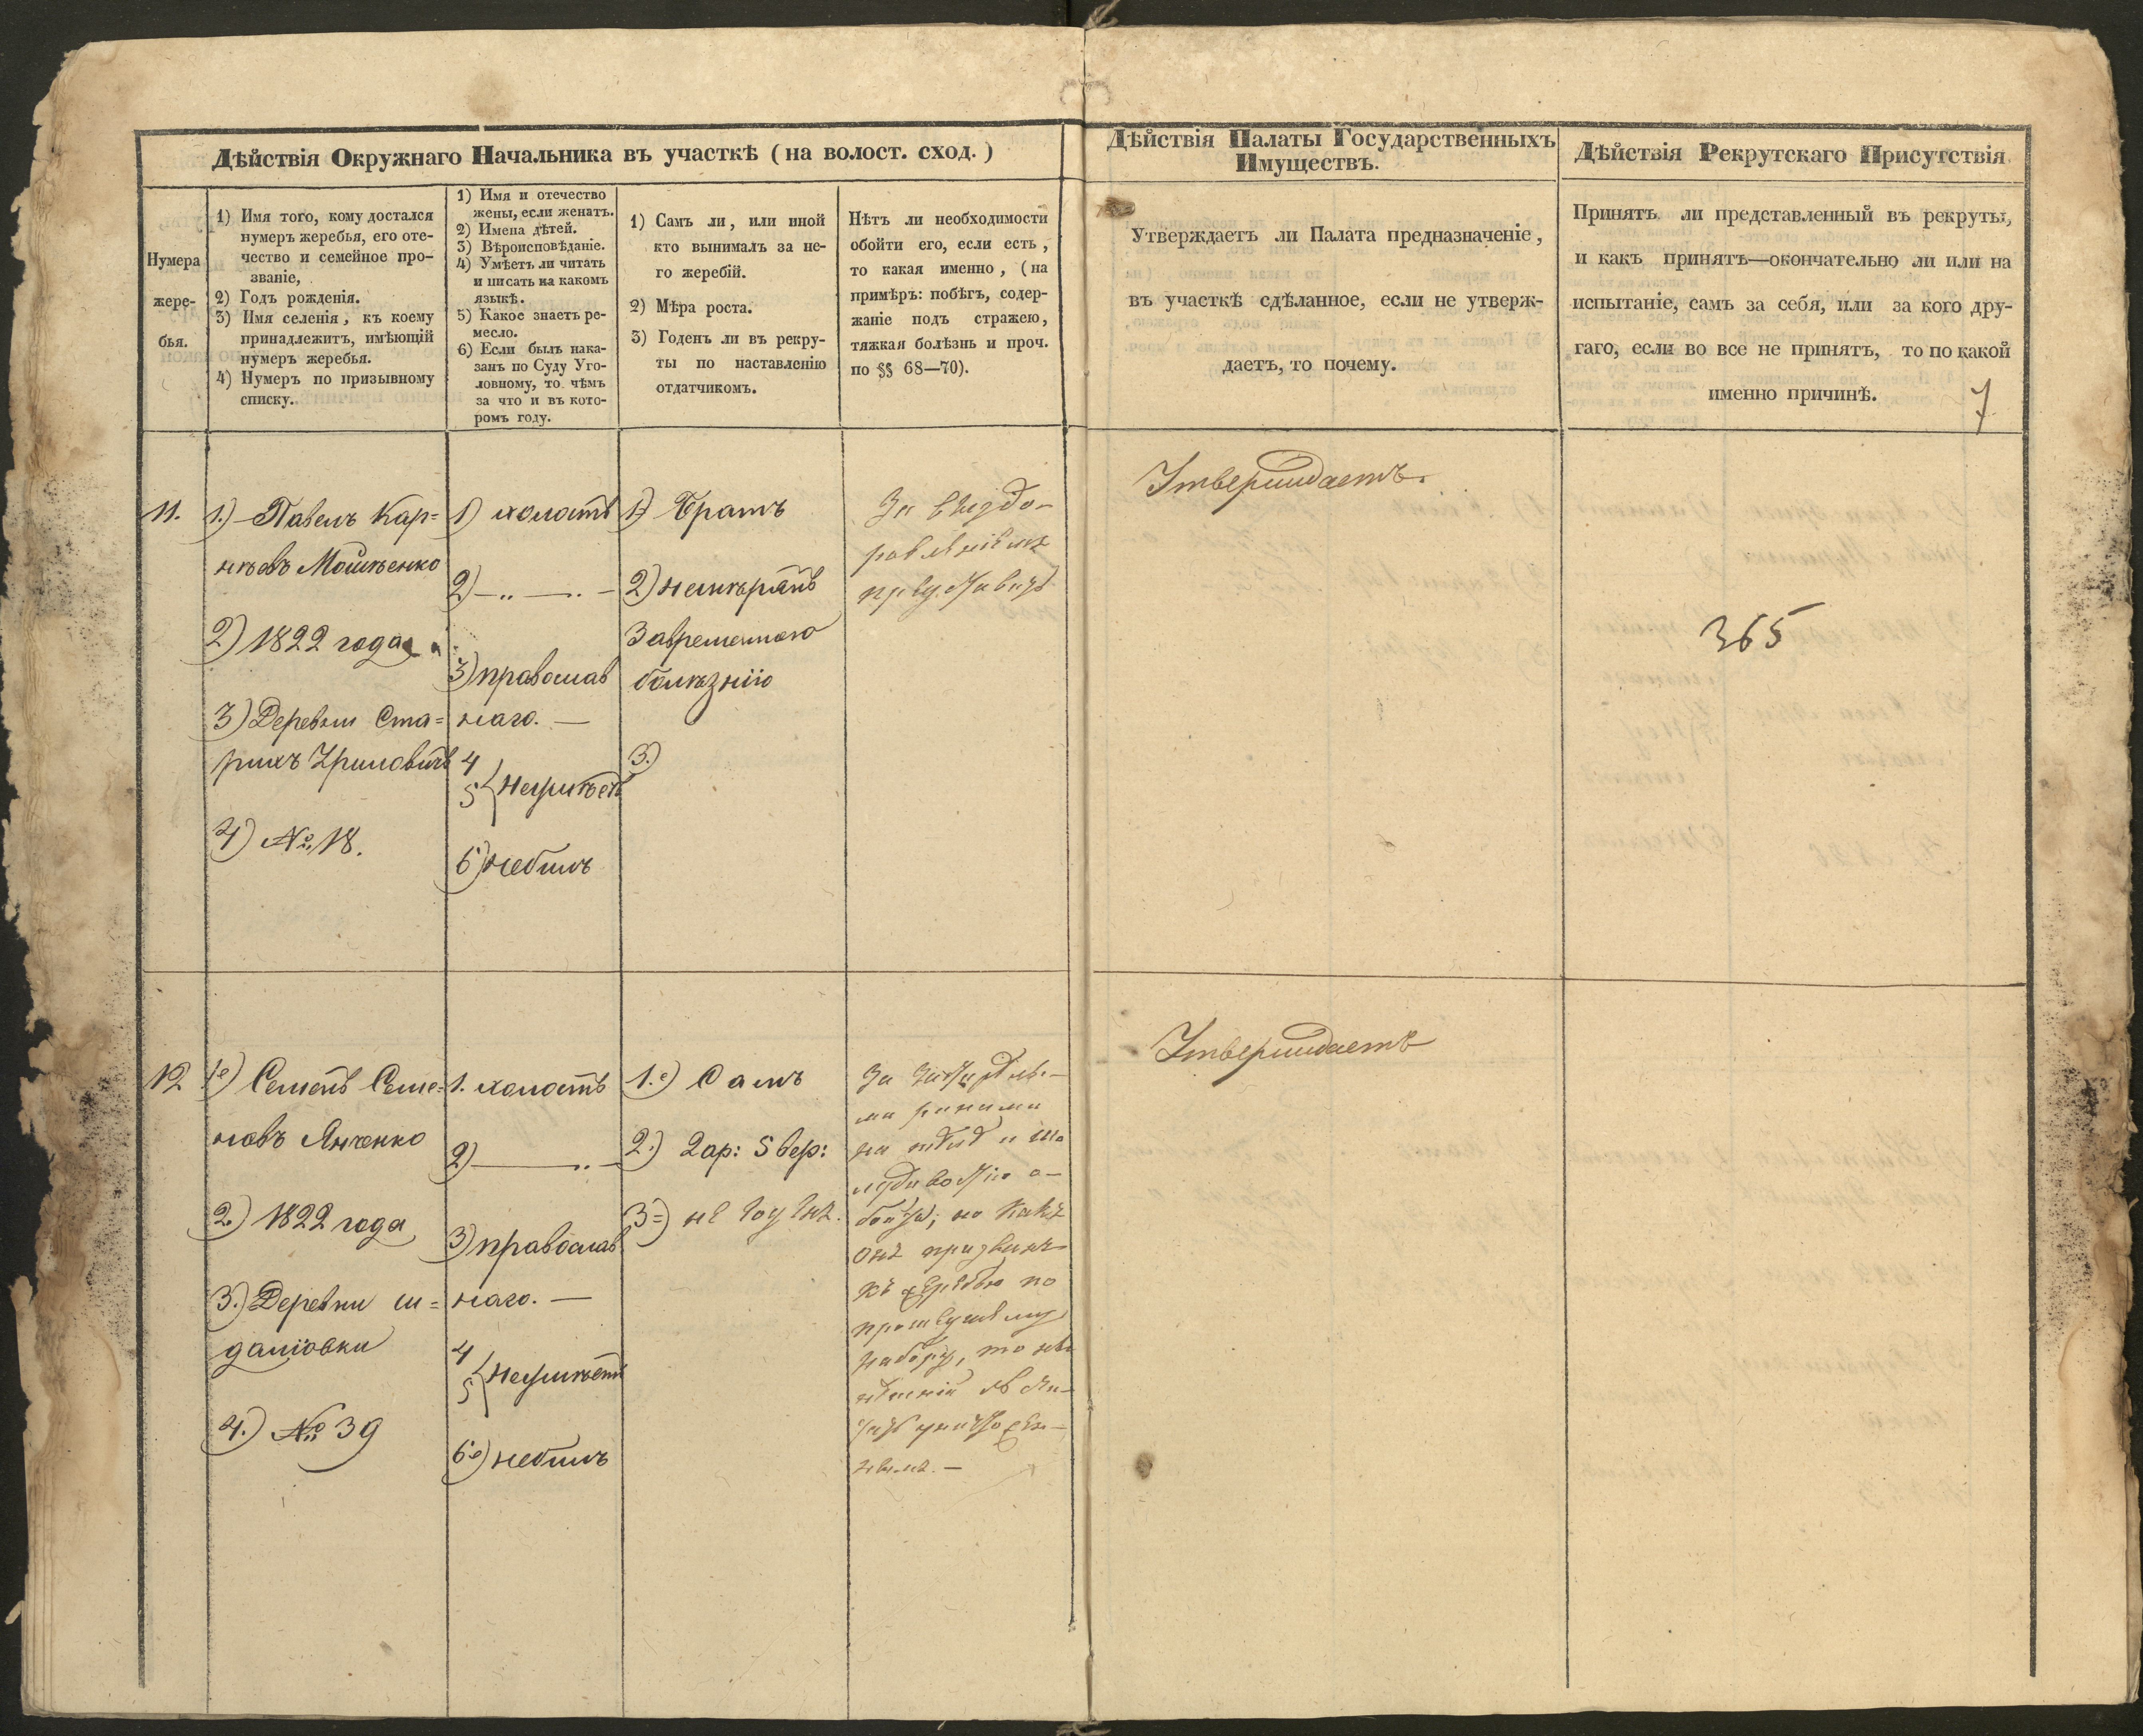 Дѣйствія Окружнаго Начальника въ участкѣ (на волост. сход.)
Нумера
жере-
бья.
1) Имя того, кому достался
нумеръ жеребья, его оте-
чество и семейное про-
званіе,
2) Годъ рожденія.
3) Имя селенія, къ коему
принадлежитъ, имѣющій
нумеръ жеребья.
4) Нумеръ по призывному
списку.
1) Имя и отечество
жены, если женатъ.
2) Имена дѣтей.
3) Вѣроисповѣданіе.
4) Умѣетъ ли читать
и писать на какомъ
языкѣ.
5) Какое знаетъ ре-
месло.
6) Если былъ нака-
занъ по Суду Уго-
ловному, то чѣмъ
за что и въ кото-
ромъ году.
1) Самъ ли, или иной
кто вынималъ за не-
го жеребій.
2) Мѣра роста.
3) Годенъ ли въ рекру-
ты по наставленію
отдатчикомъ.
Нѣтъ ли необходимости
обойти его, если есть,
то какая именно, (на
примѣръ: побѣгъ, содер-
жаніе подъ стражею,
тяжкая болѣзнь и проч.
по §§ 68—70).
Дѣйствія Палаты Государственныхъ
Имуществъ.
Утверждаетъ ли Палата предназначеніе,
въ участкѣ сдѣланное, если не утверж-
даетъ, то почему.
Дѣйствія Рекрутскаго Присутствія
Принятъ ли представленный въ рекруты,
и какъ принятъ—окончательно ли или на
испытаніе, самъ за себя, или за кого дру-
гаго, если во все не принятъ, то по какой
именно причинѣ.
7
11.
1.) Павелъ Кар=
нѣевъ Мошѣенко
2) 1822 года
3) Деревни Ста=
рыхъ
4) №18.
1) холостъ
2) — „ — „ —
3) православ
наго. —
4
5 { Неумѣетъ
6) небылъ
1) Братъ
2) немѣрянъ
Завременною
болѣзнію
3.)
За
Утверждаетъ.
365
12
1е) Семенъ Семе=
новъ Янченко
2) 1822 года
3.) Деревни
4.) № 39
1. холостъ
2) — „ —
3) православ
наго. —
4
5 { Неумѣетъ
6е) небылъ
1.е) Самъ
2.) 2 ар: 5 вер:
3=) не
За
ми ранами
на
но какъ
онъ призванъ
къ жеребью по
набору, то
Утверждаетъ